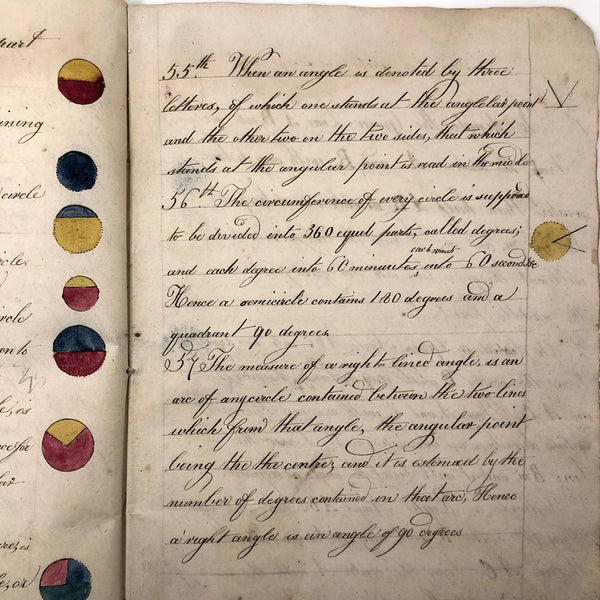 part
ining
circle
circle,
rcle
on to
le, is
ce for
lar
are, is
le, or
55.th When an angle is denoted by three
letteres, of which one stands at the anglelar point
and the other two on the two sides, that which
stands at the angular point is read in the middle
56th The circumference of every circle is supposed
to be divided into 360 equel parts, called degrees;
each minute
and each degree into 60 minutes, into 60 seconds
Hence a semicircle contains 180 degrees and a
quadrant 90 degrees.
57 The measure of a right-lined angle, is an
arc of any circle contained between the two lines
which from that angle, the angular point
being the the centre; and it is estemed by the
number of degrees contained in that arc, Hence
a right angle is an angle of 90 degrees